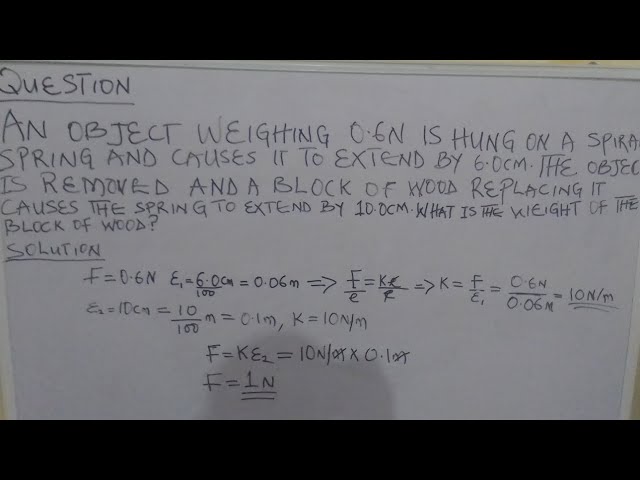 QUESTION
AN OBJECT WEIGHING 0.6N IS HUNG ON A SPIRA
SPRING AND CAUSES IT TO EXTEND BY 6.0CM. THE OBJEC
IS REMOVED AND A BLOCK OF WOOD REPLACING IT
CAUSES THE SPRING TO EXTEND BY 10.0CM. WHAT IS THE WEIGHT OF THE
BLOCK OF WOOD?
SOLUTION
F=0.6N ε₁=6.0cm/100=0.06m => F/e=Ke/e => K=F/ε₁=0.6N/0.06M=10N/m
ε₂=10cm=10/100 m=0.1m, K=10N/m
F=Kε₂=10N/m×0.1m
F=1N